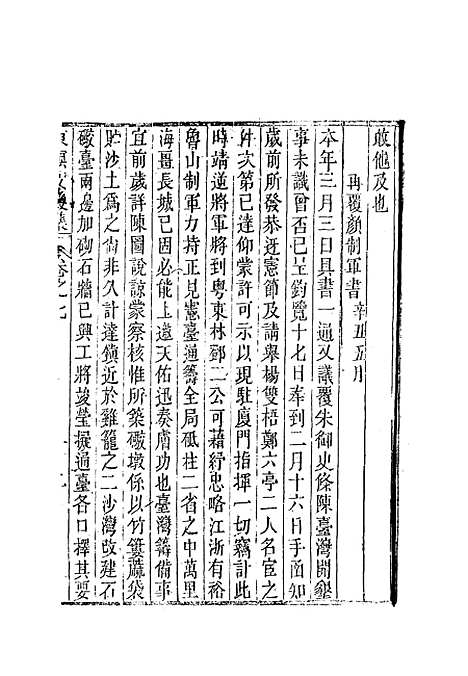 敢他及也
再覆顏制軍書辛丑五月
本年三月三日具書一通又議覆朱御史條陳臺灣開墾
事未識曾否已呈鈞覽十七日奉到二月十六日手函知
歲前所發恭迓憲節及請舉楊雙梧鄭六亭二人名宦之
件次第已達仰蒙許可示以現駐廈門指揮一切竊計此
時靖逆將軍將到粵東林鄧二公可藉紓忠略江浙有裕
魯山制軍力持正見憲臺運籌全局砥柱二省之中萬里
海疆長城已固必能上邀天佑迅奏膚功也臺灣籌備事
宜前歲詳陳圖說諒蒙察核惟所築礮墩係以竹簍蔴袋
貯沙土為之尚非久計達鎮近於雞籠之二沙灣改建石
礮臺兩邊加砌石牆已興工將竣瑩擬通臺各口擇其要